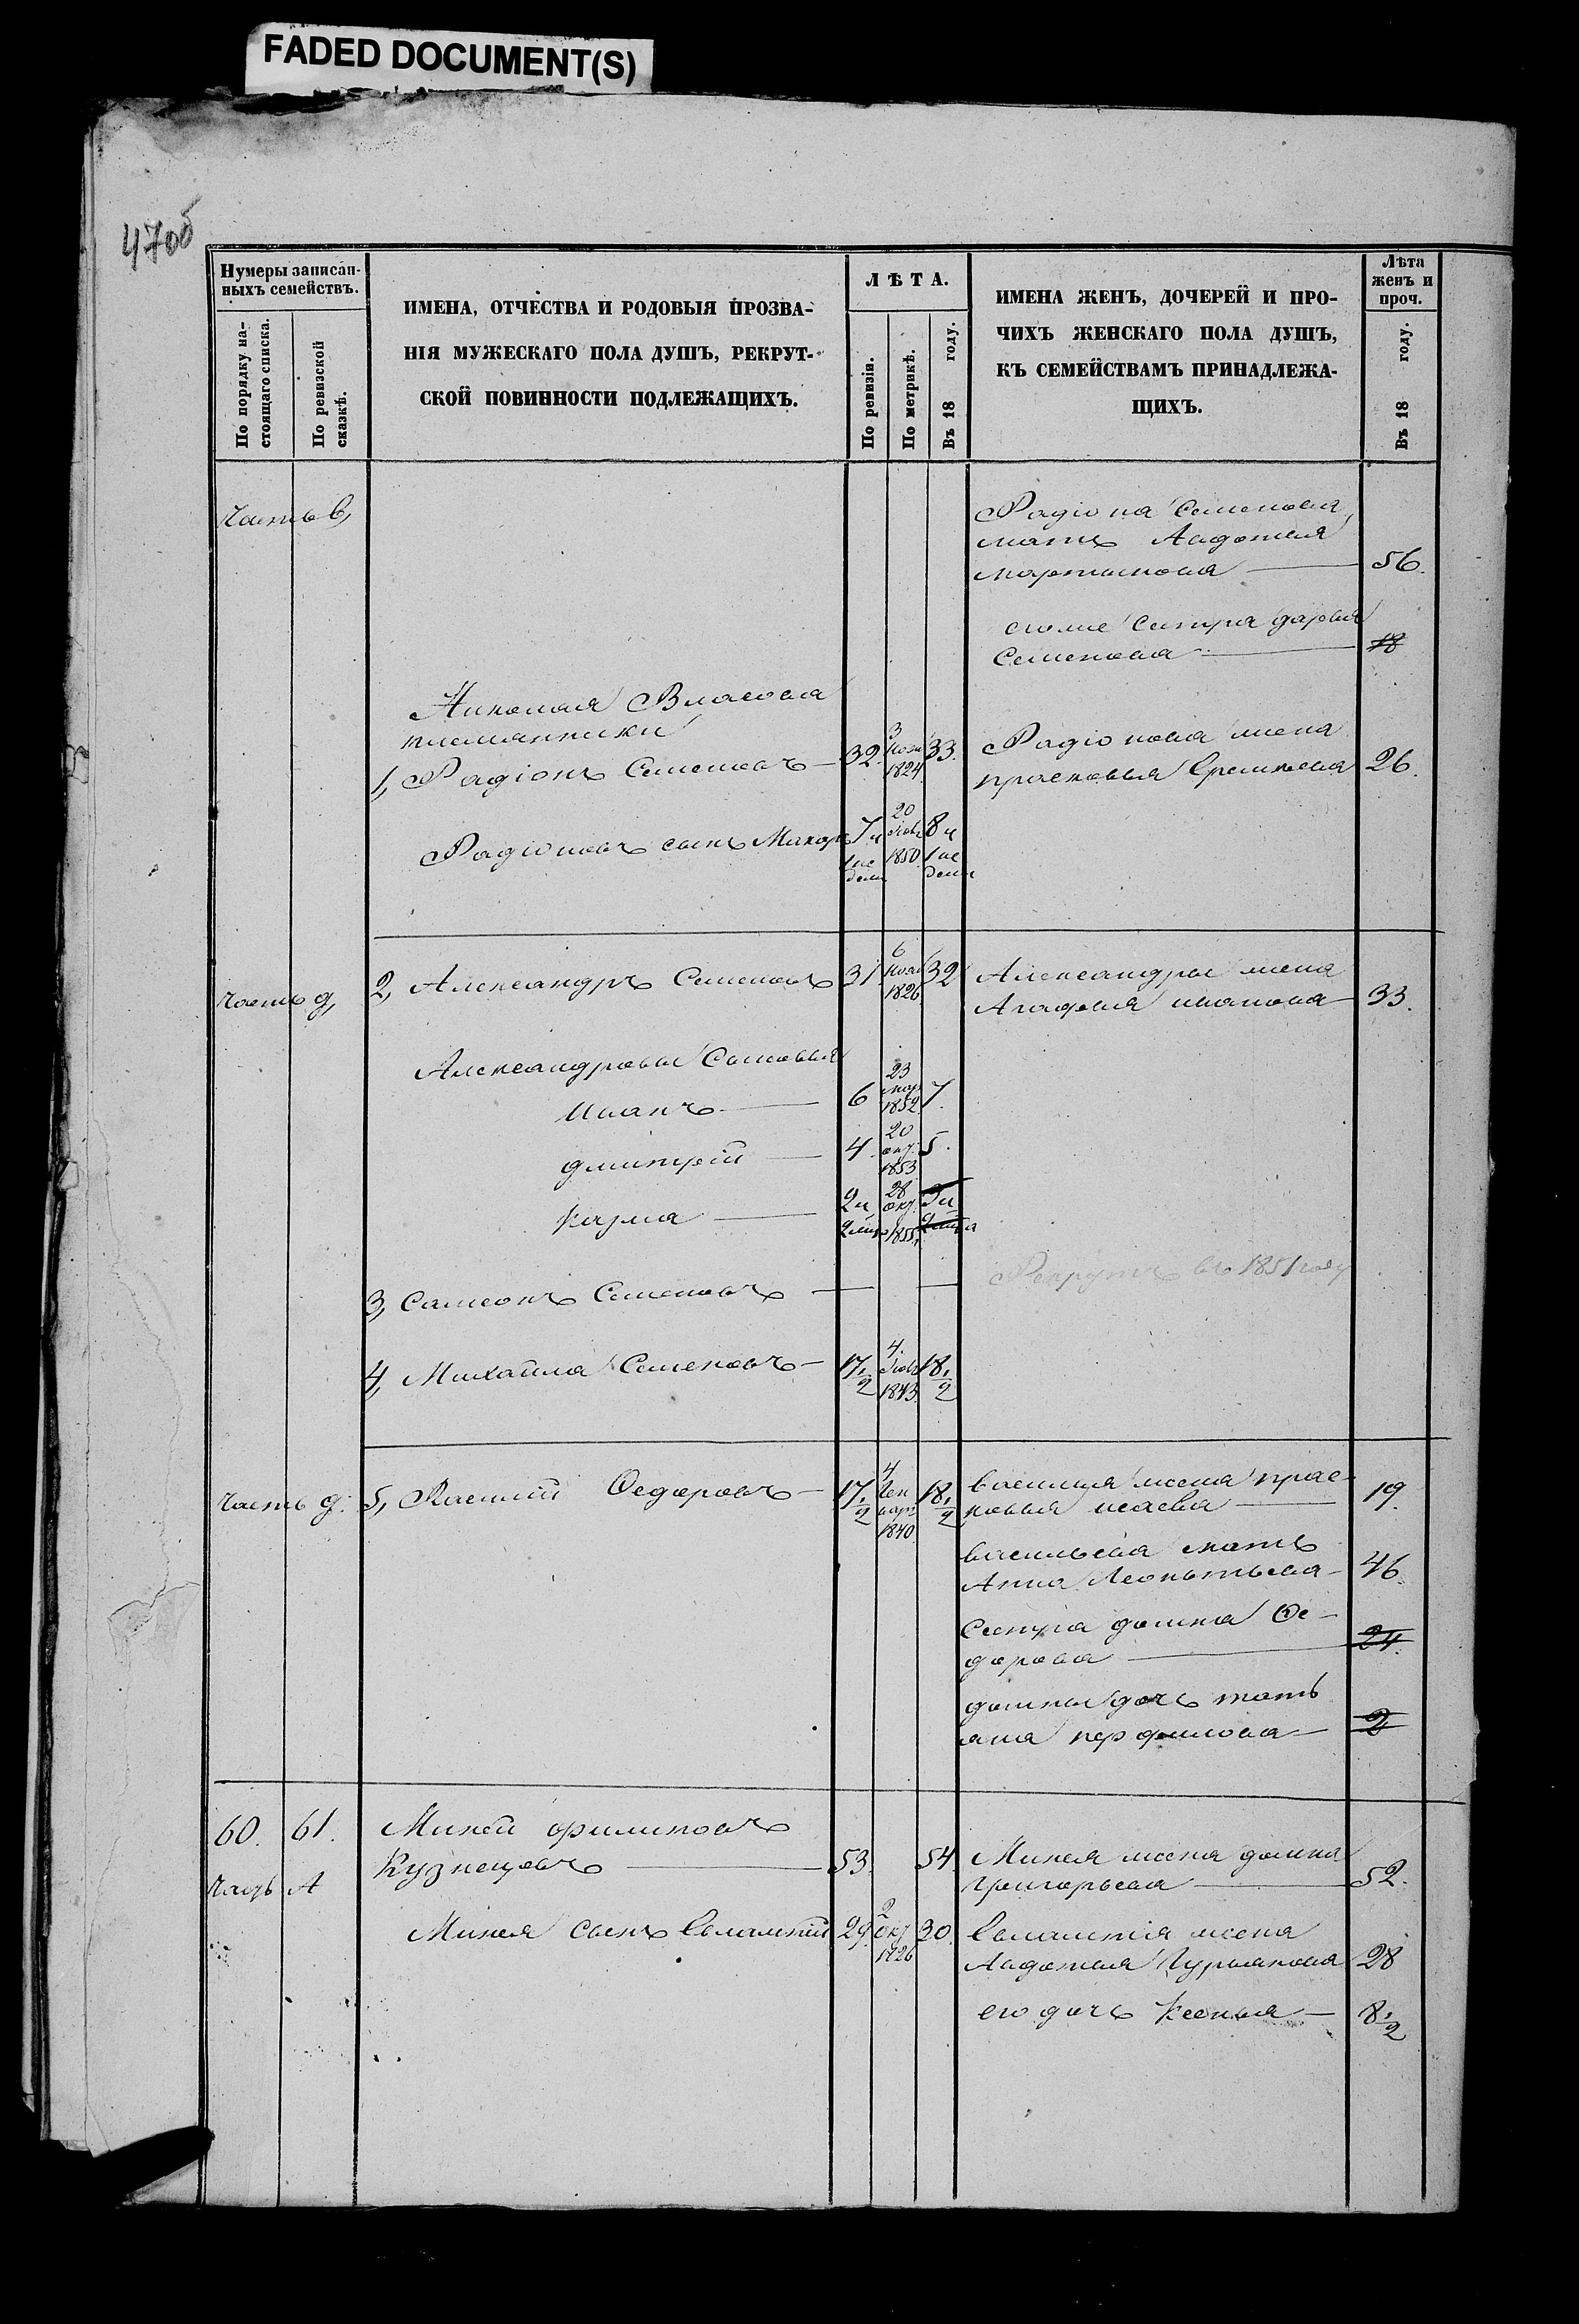 FADED DOCUMENT(S)
47об
Нумеры записан-
ныхъ семействъ.
По порядку на-
стоящаго списка.
По ревизской
сказкѣ.
ИМЕНА, ОТЧЕСТВА И РОДОВЫЯ ПРОЗВА-
НІЯ МУЖЕСКАГО ПОЛА ДУШЪ, РЕКРУТ-
СКОЙ ПОВИННОСТИ ПОДЛЕЖАЩИХЪ.
ЛѢТА.
По ревизіи.
По метрикѣ.
Въ 18 году.
ИМЕНА ЖЕНЪ, ДОЧЕРЕЙ И ПРО-
ЧИХЪ ЖЕНСКАГО ПОЛА ДУШЪ,
КЪ СЕМЕЙСТВАМЪ ПРИНАДЛЕЖА-
ЩИХЪ.
Лѣта
женъ и
проч.
Въ 18 году.
Часть в,
Радіона Семенова
мать Авдотья
мартынова 56.
сестра дарья
Семенова 18
Николая Власова
племянники
1, Радіонъ Семеновъ 32. 3 Нояб 1824 33.
Радіонова жена
прасковья Еремѣева 26.
Радіоновъ сынъ Макаръ 7 и 20 1850 8 и
Часть д, 2, Александръ Семеновъ 31 6 Нояб 1826 32
Александры жена
Агафья иванова 33.
Александровы Сыновья
Иванъ 6 23 мар 1852 7.
дмитрій 4. 20 окт. 1853 5.
Казма 2 и 28 окт. 1855. 3 и
3, Самсонъ Семеновъ
Рекрутъ въ 1851 году
4, Михайла Семеновъ 17 1/2 4. 1843. 18 1/2
Часть д. 5, Василій Федоровъ 17 1/2 4 Ген вар 1840 18 1/2
василья жена прас-
ковья исаева 19.
васильева мать
Анна Леонтьева 46.
Сестра домна Фе-
дорова 24.
домны дочь тать
яна перфилова 2
60. 61. Миней филиповъ
Кузнецовъ 53. 54
Часть А
Минея жена домна
григорьева 52.
Минея сынъ Евлампій 29. 2 Окт 1826 30.
Евлампія жена
Авдотья Гурьянова 28
его дочь Ксенья 8 1/2